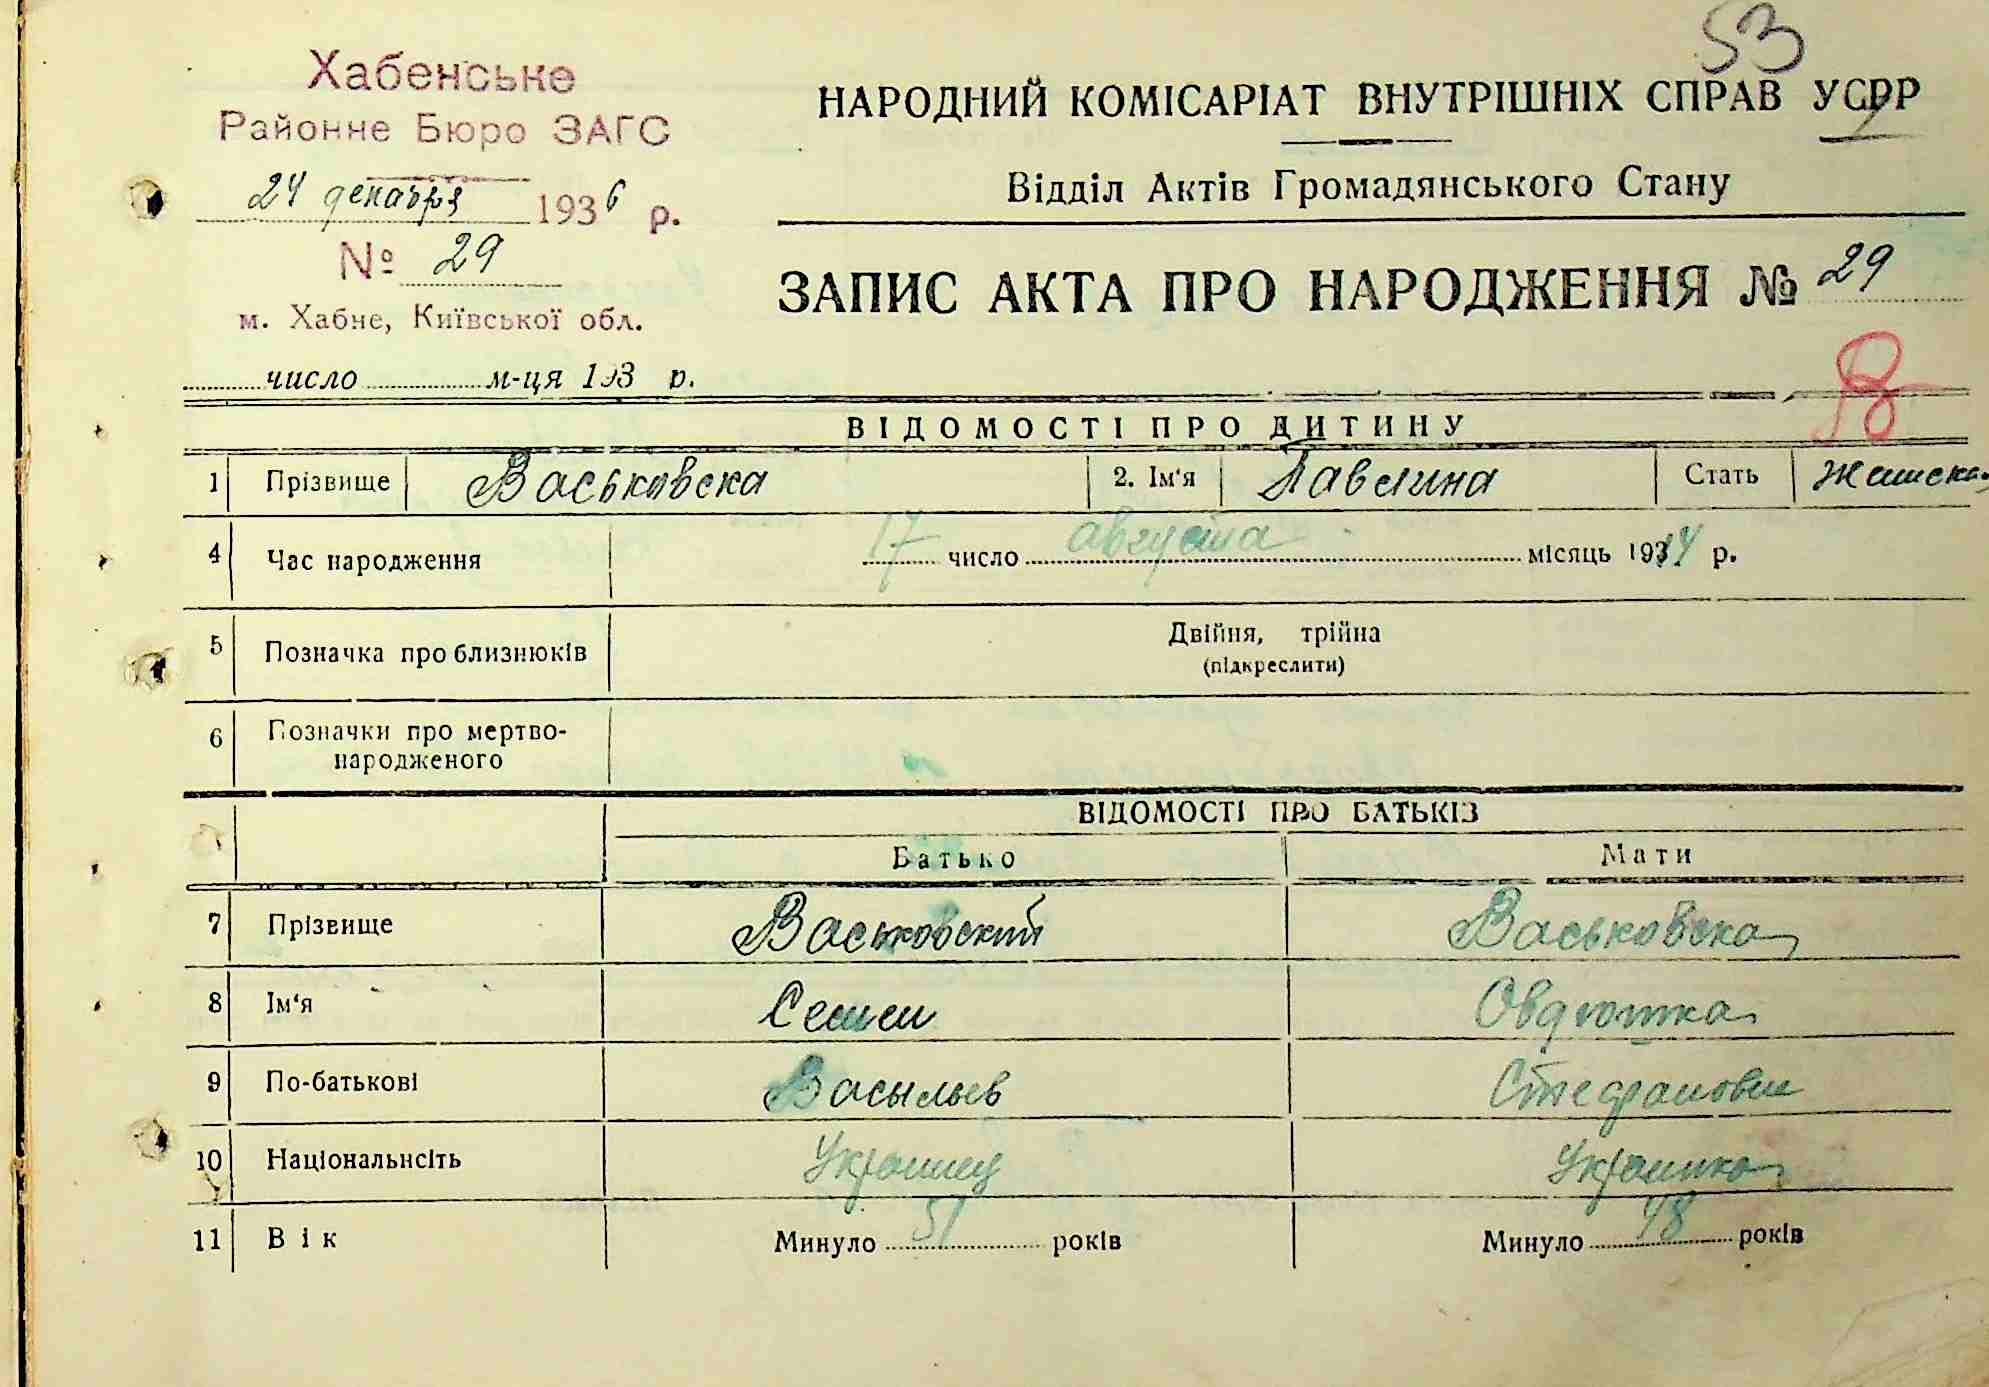 53
Хабенське
Районне Бюро ЗАГС
24 декабря 1936 р.
№ 29
м. Хабне, Київської обл.
число м-ця 193 р.
НАРОДНИЙ КОМІСАРІАТ ВНУТРІШНІХ СПРАВ УСРР
Відділ Актів Громадянського Стану
ЗАПИС АКТА ПРО НАРОДЖЕННЯ № 29
ВІДОМОСТІ ПРО ДИТИНУ
1 Прізвище Васьковска 2. Ім'я Павлина Стать Женска
4 Час народження 17 число августа місяць 1914 р.
5 Позначка про близнюків Двійня, трійна
(підкреслити)
6 Позначки про мертво-
народженого
ВІДОМОСТІ ПРО БАТЬКІВ
Батько Мати
7 Прізвище Васьковский Васьковска
8 Ім'я Семен
9 По-батькові Васыльев Стефановна
10 Національнсіть Украинец Украинка
11 Вік Минуло 51 років Минуло 48 років